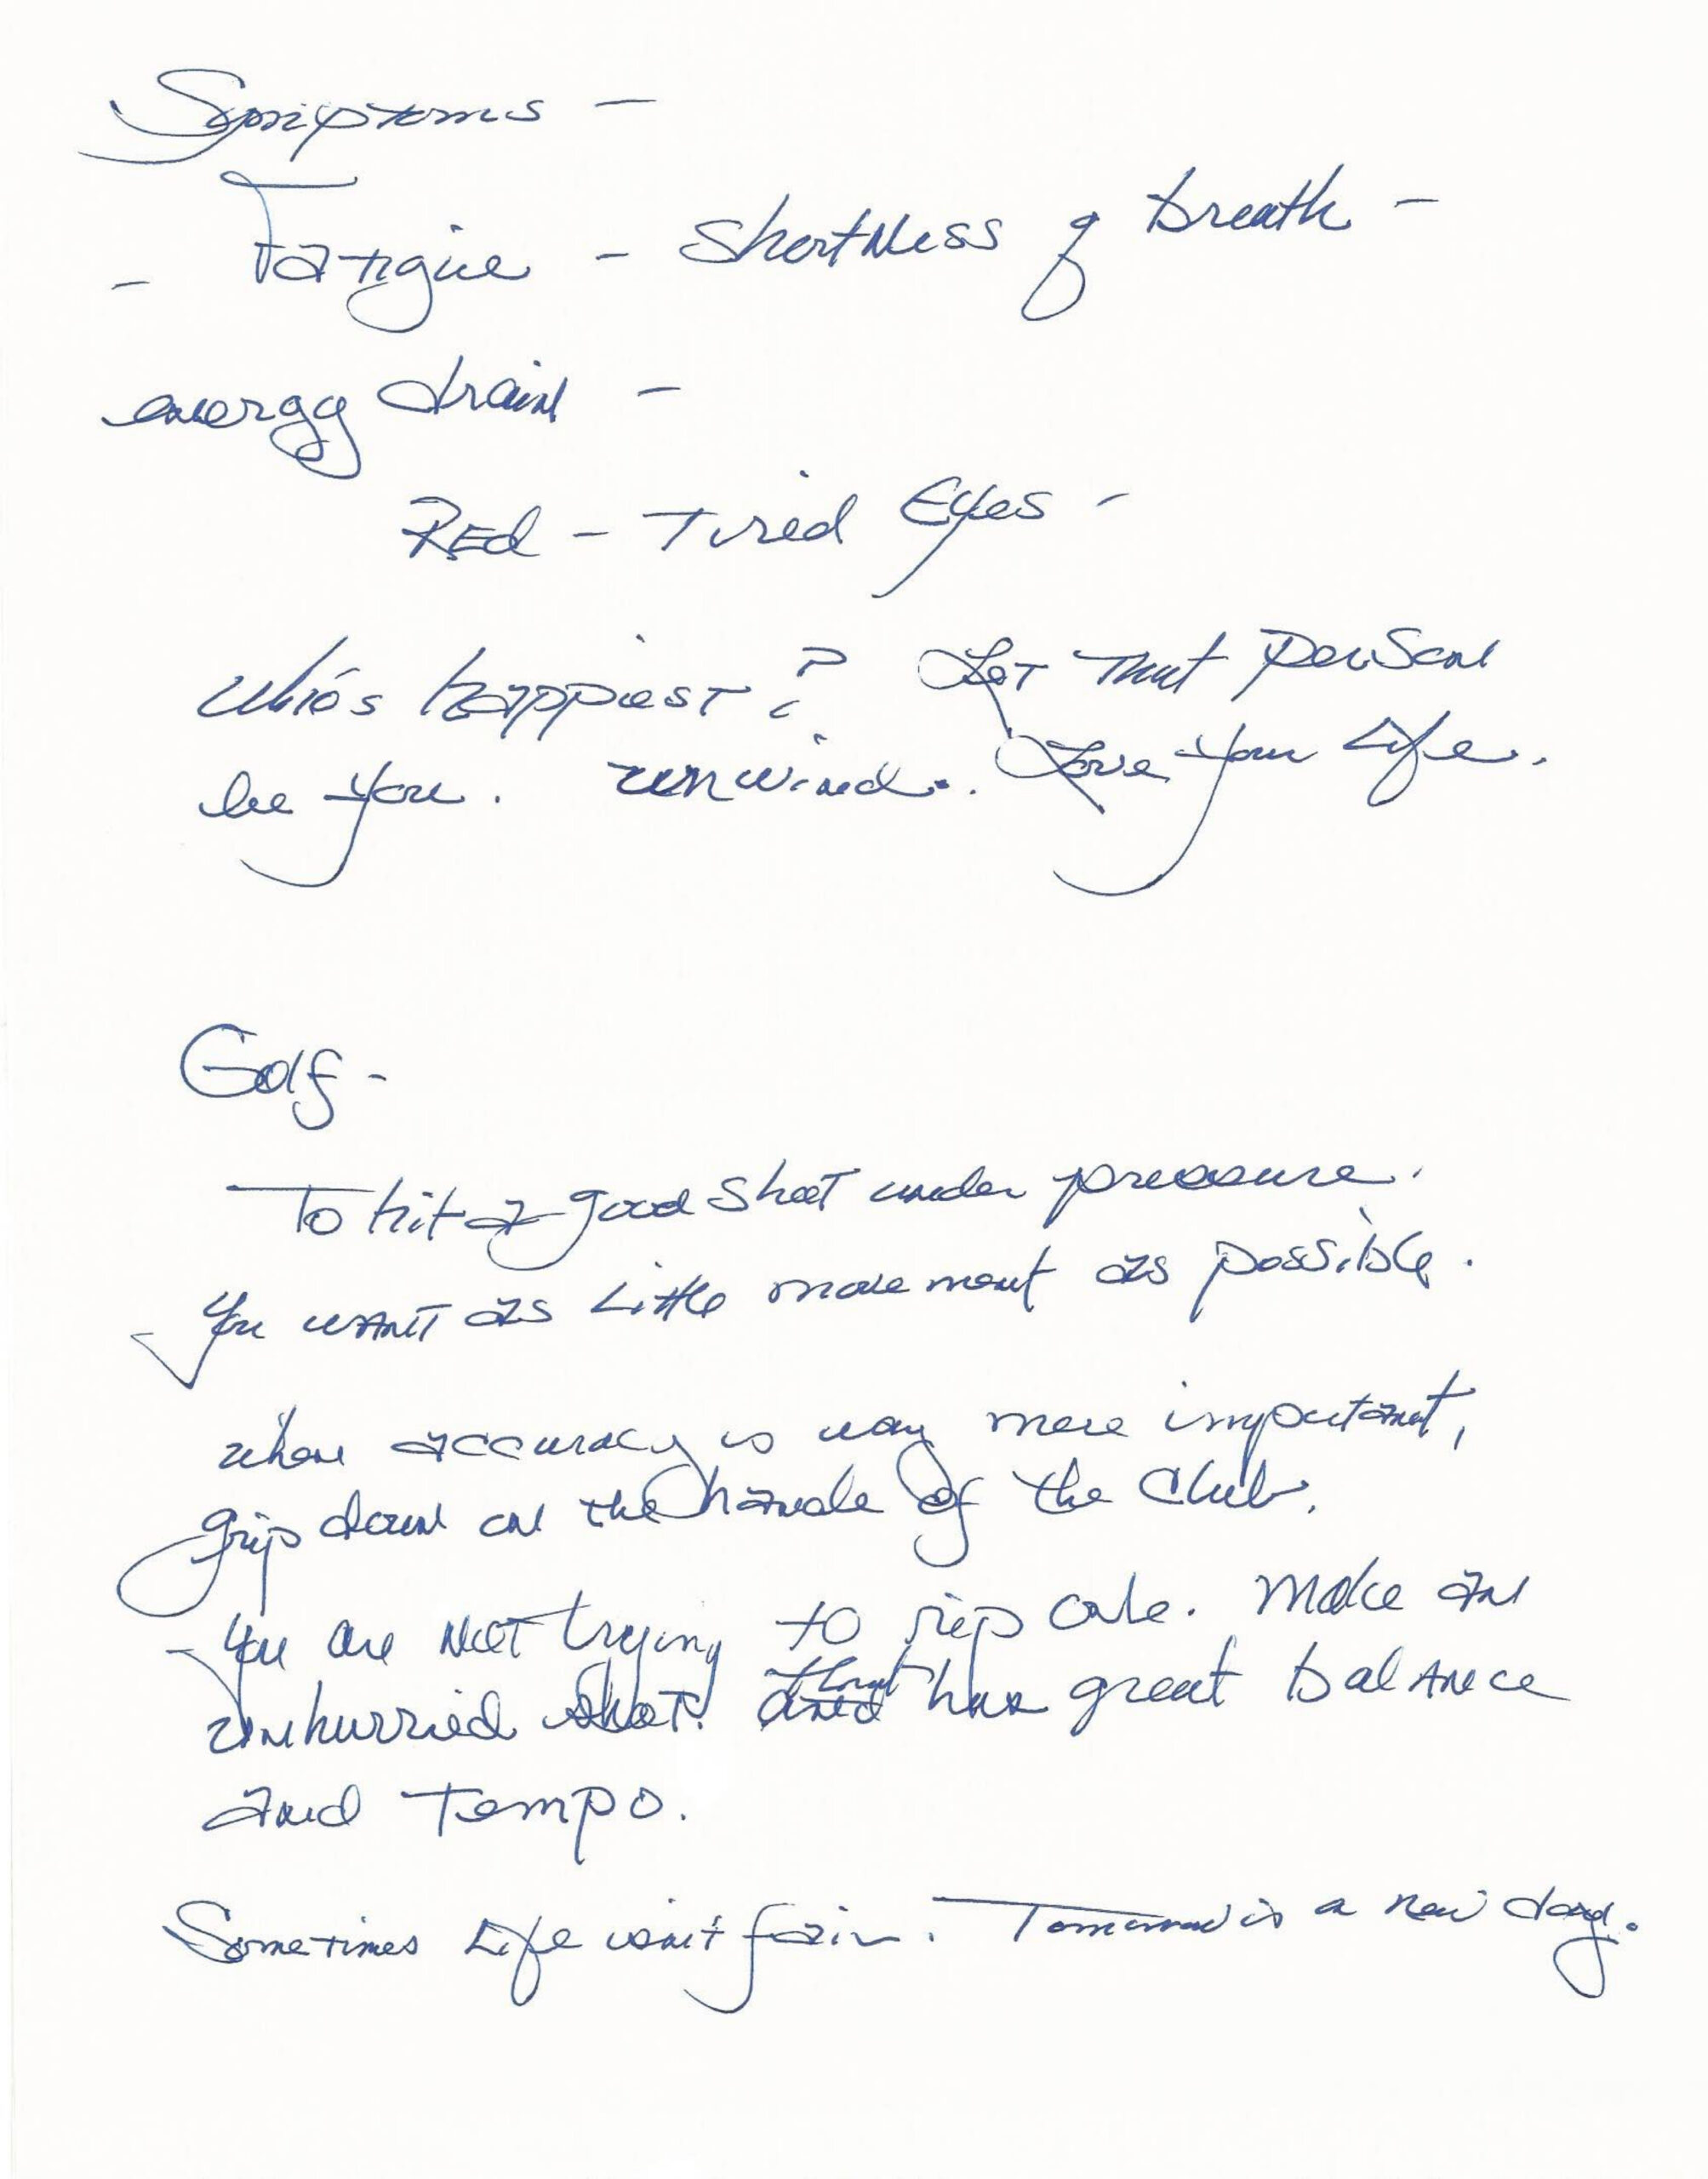 Symptoms -
- Fatigue - Shortness of breath -
energy drain -
Red - Tired Eyes -
Who's happiest? Let that person
be you. unwind.. Love your Life.
Golf -
To hit a good shot under pressure.
You want as Little movement as possible.
when accuracy is way more important,
grip down on the handle of the club.
- You are Not trying to rip one. Make an
unhurried shot. and that has great balance
and tempo.
Sometimes Life isn't fair. Tomorrow is a new day.